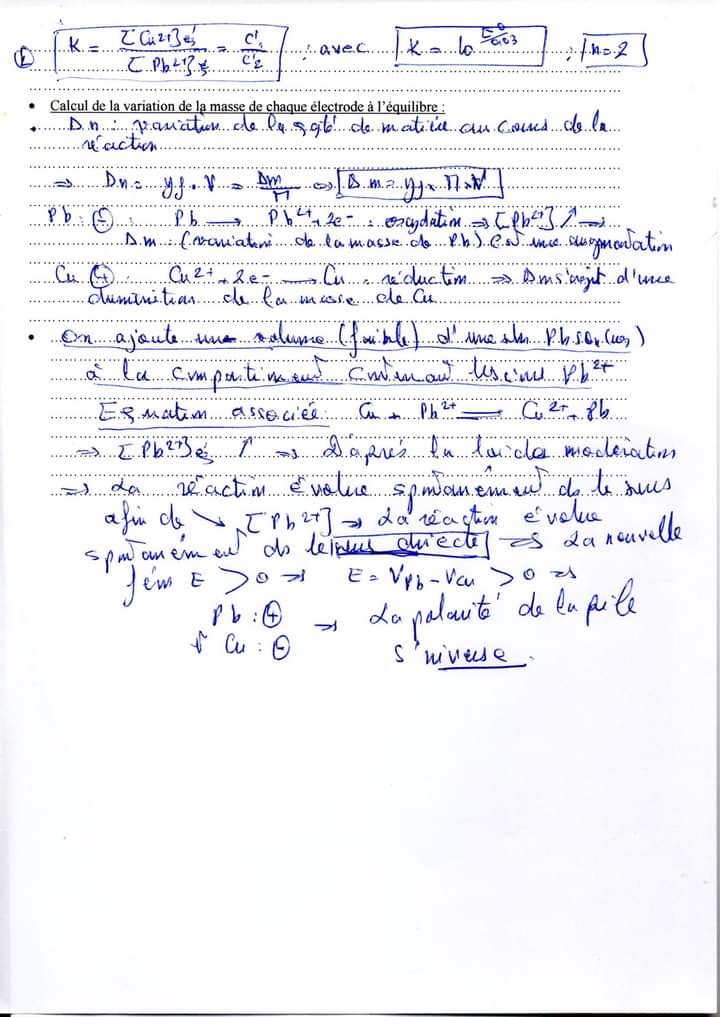 ② K = [Cu2+]éq / [Pb2+]éq = C'1 / C'2 ; avec K = 10^(E0/0,03) ; n = 2
• Calcul de la variation de la masse de chaque électrode à l'équilibre :
• Dn : variation de la qté de matière au cours de la
réaction
⇒ Dn = yf . V = Dm/M ⇔ Dm = yf x M x V
Pb : ⊖ : Pb → Pb2+ + 2e- : oxydation ⇒ [Pb2+] ↗ →
Dm : (variation de la masse de Pb) est une augmentation
Cu ⊕ : Cu2+ + 2e- → Cu : réduction ⇒ Dm s'agit d'une
diminution de la masse de Cu
• On ajoute une volume (faible) d'une sln PbSO4 (aq)
à la compartiment contenant Pb2+
Equation associée : Cu + Pb2+ ⇌ Cu2+ + Pb
⇒ [Pb2+]éq ↗ ⇒ D'après la loi de modération
⇒ La réaction évolue spontanément ds le sens
afin de ↘ [Pb2+] → La réaction évolue
spontanément ds le sens directe ⇒ La nouvelle
fém E > 0 ⇒ E = VPb - VCu > 0 ⇒
Pb : ⊕ ⇒ La polarité de la pile
Cu : ⊖ s'inverse.